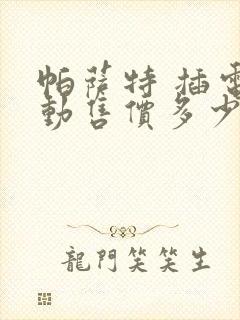 帕薩特 插電
動售價多少
龍門笑笑生